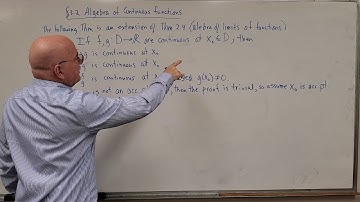 §3.2 Algebra of Continuous functions
The following Thm is an extension of Thm 2.4 (algebra of limits of functions)
If f,g: D→ℝ are continuous at x₀∈D, then
g is continuous at x₀
g is continuous at x₀
is continuous at g(x₀)≠0.
is not an acc. , then the proof is trivial, so assume x₀ is acc pt